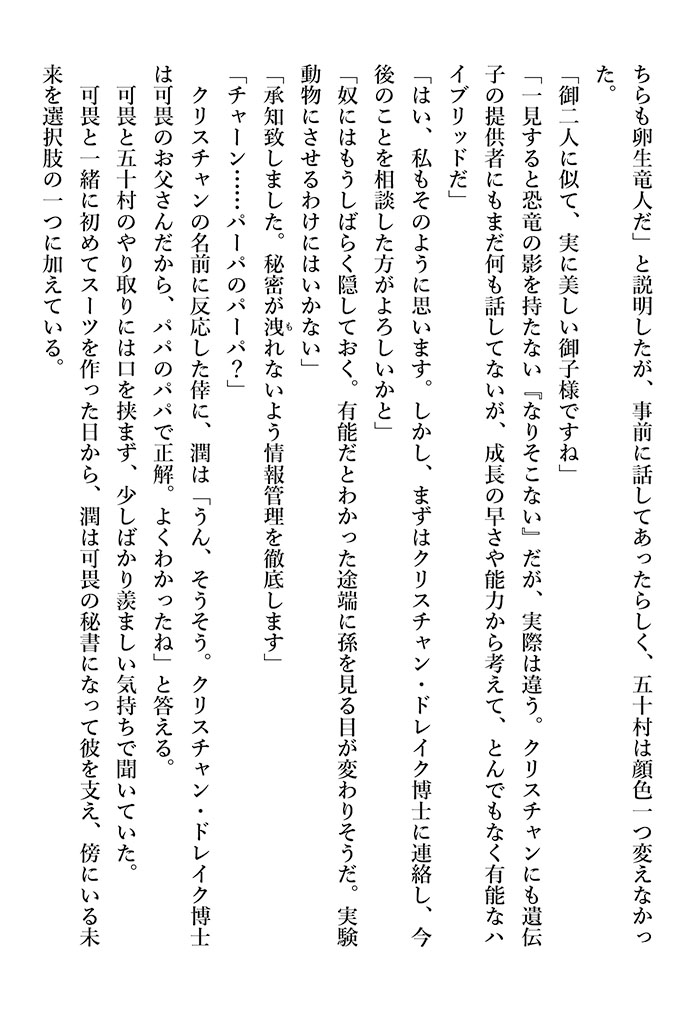 ちらも卵生竜人だ」と説明したが、事前に話してあったらしく、五十村は顔色一つ変えなかっ
た。
「御二人に似て、実に美しい御子様ですね」
「一見すると恐竜の影を持たない『なりそこない』だが、実際は違う。クリスチャンにも遺伝
子の提供者にもまだ何も話してないが、成長の早さや能力から考えて、とんでもなく有能なハ
イブリッドだ」
「はい、私もそのように思います。しかし、まずはクリスチャン・ドレイク博士に連絡し、今
後のことを相談した方がよろしいかと」
「奴にはもうしばらく隠しておく。有能だとわかった途端に孫を見る目が変わりそうだ。実験
動物にさせるわけにはいかない」
「承知致しました。秘密が洩もれないよう情報管理を徹底します」
「チャーン……パーパのパーパ？」
クリスチャンの名前に反応した倖に、潤は「うん、そうそう。クリスチャン・ドレイク博士
は可畏のお父さんだから、パパのパパで正解。よくわかったね」と答える。
可畏と五十村のやり取りには口を挟まず、少しばかり羨ましい気持ちで聞いていた。
可畏と一緒に初めてスーツを作った日から、潤は可畏の秘書になって彼を支え、傍にいる未
来を選択肢の一つに加えている。